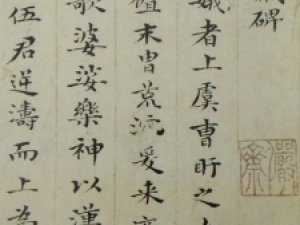 娥碑
娥者上虞曹盱之
祖末胄荒沉爰来
歌婆娑樂神以漢
伍君逆濤而上為